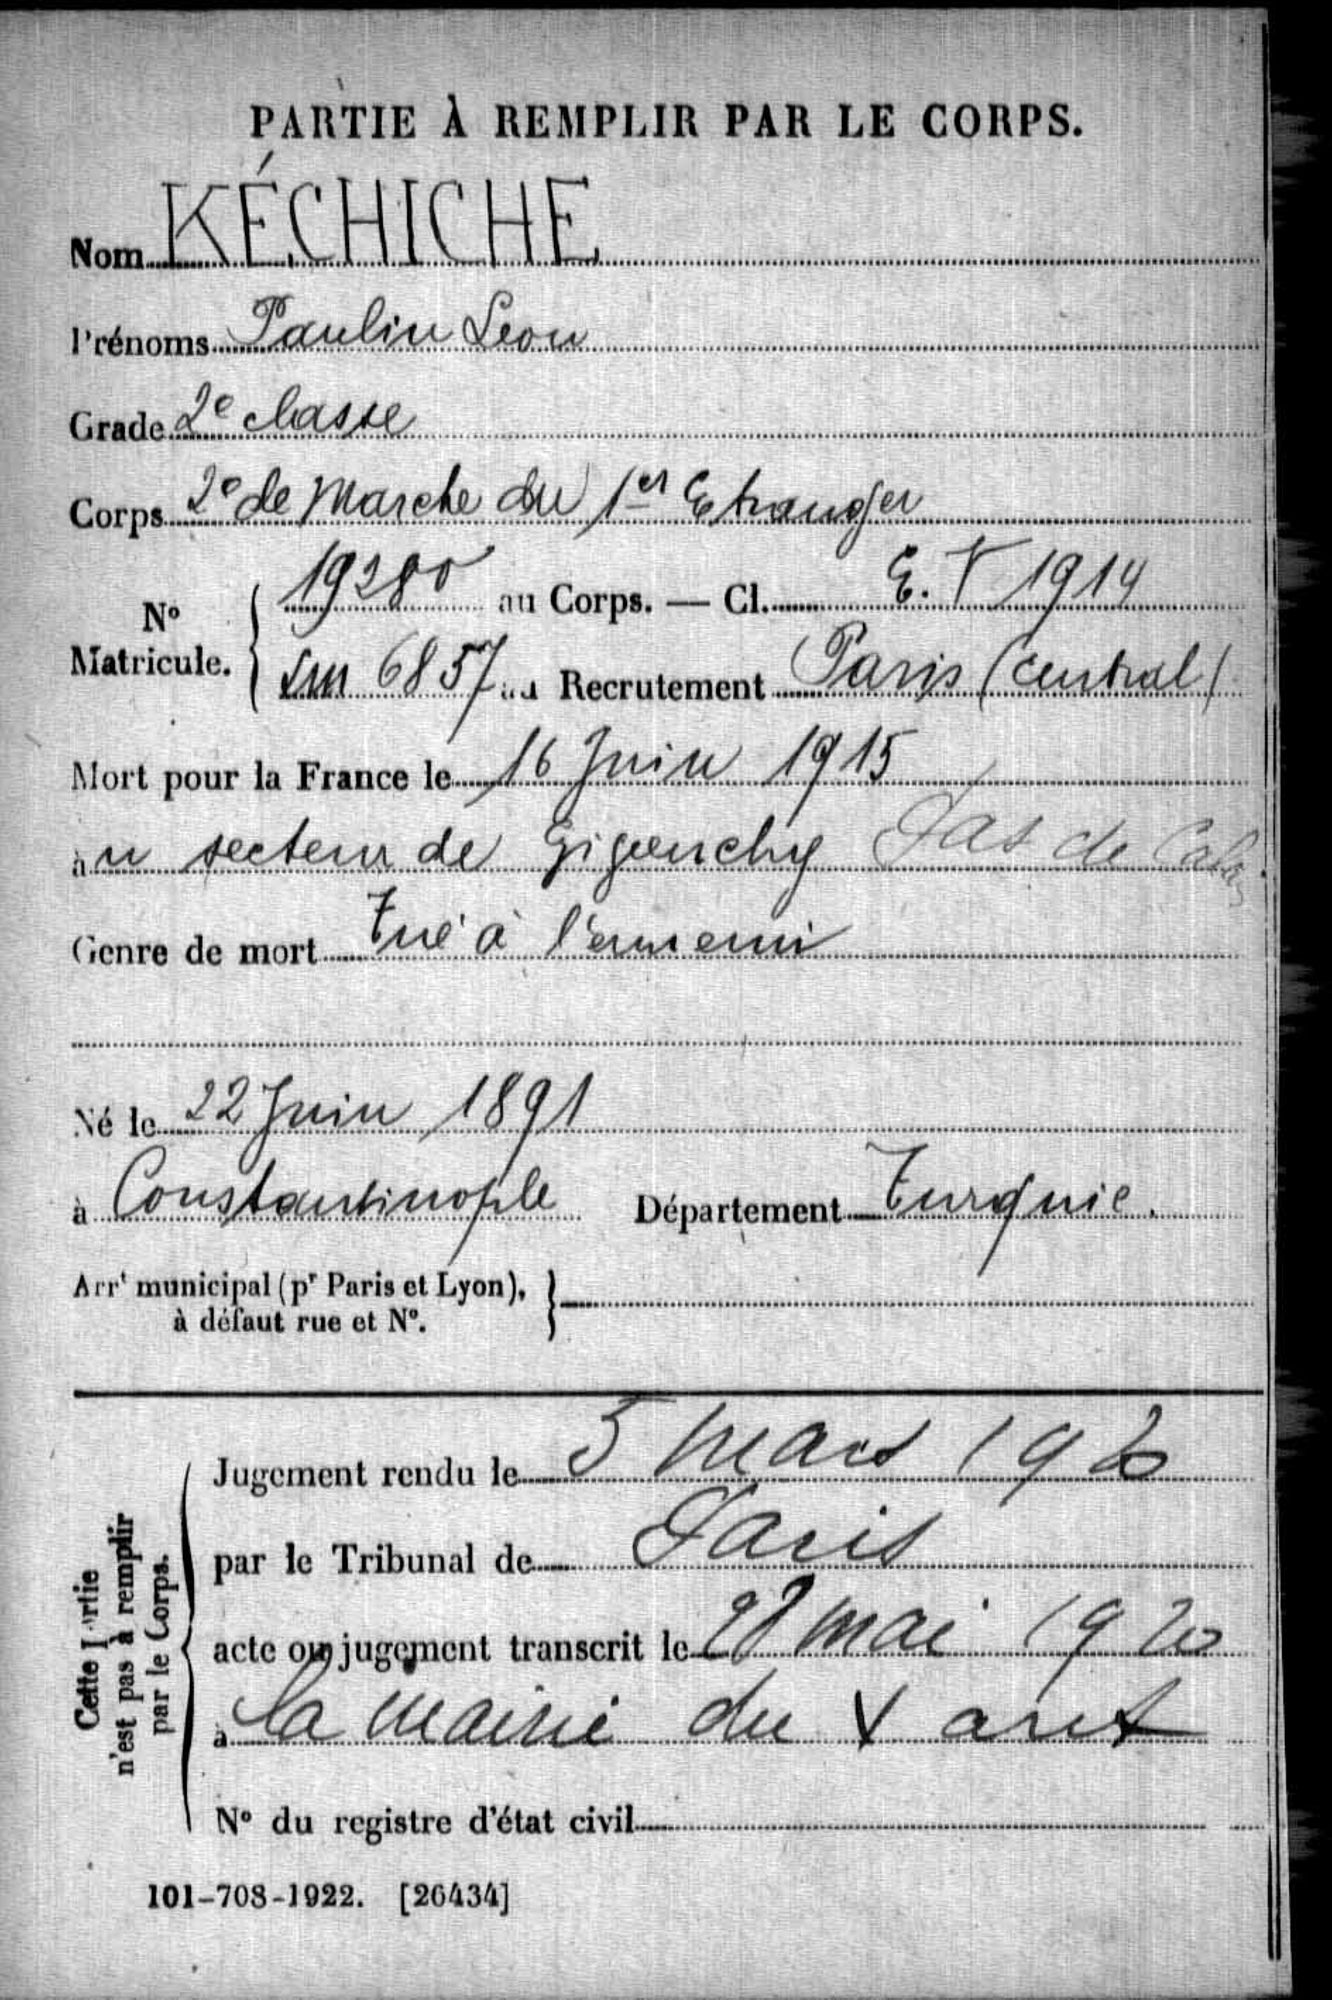 PARTIE À REMPLIR PAR LE CORPS.
Nom KÉCHICHE
Prénoms Paulin Leon
Grade 2e classe
Corps 2e de Marche du 1er Etranger
No Matricule. { 19280 au Corps. — Cl. E. V 1914
6857 au Recrutement Paris (Central)
Mort pour la France le 16 Juin 1915
au secteur de Givenchy Pas de Calais
Genre de mort Tué à l'ennemi
Né le 22 Juin 1891
à Constantinople Département Turquie.
Arrt municipal (pr Paris et Lyon), }
à défaut rue et No.
Cette Partie
n'est pas à remplir
par le Corps.
Jugement rendu le 5 mars 1920
par le Tribunal de Paris
acte ou jugement transcrit le 28 mai 1920
à la mairie du X arrt
No du registre d'état civil
101-708-1922. [26434]